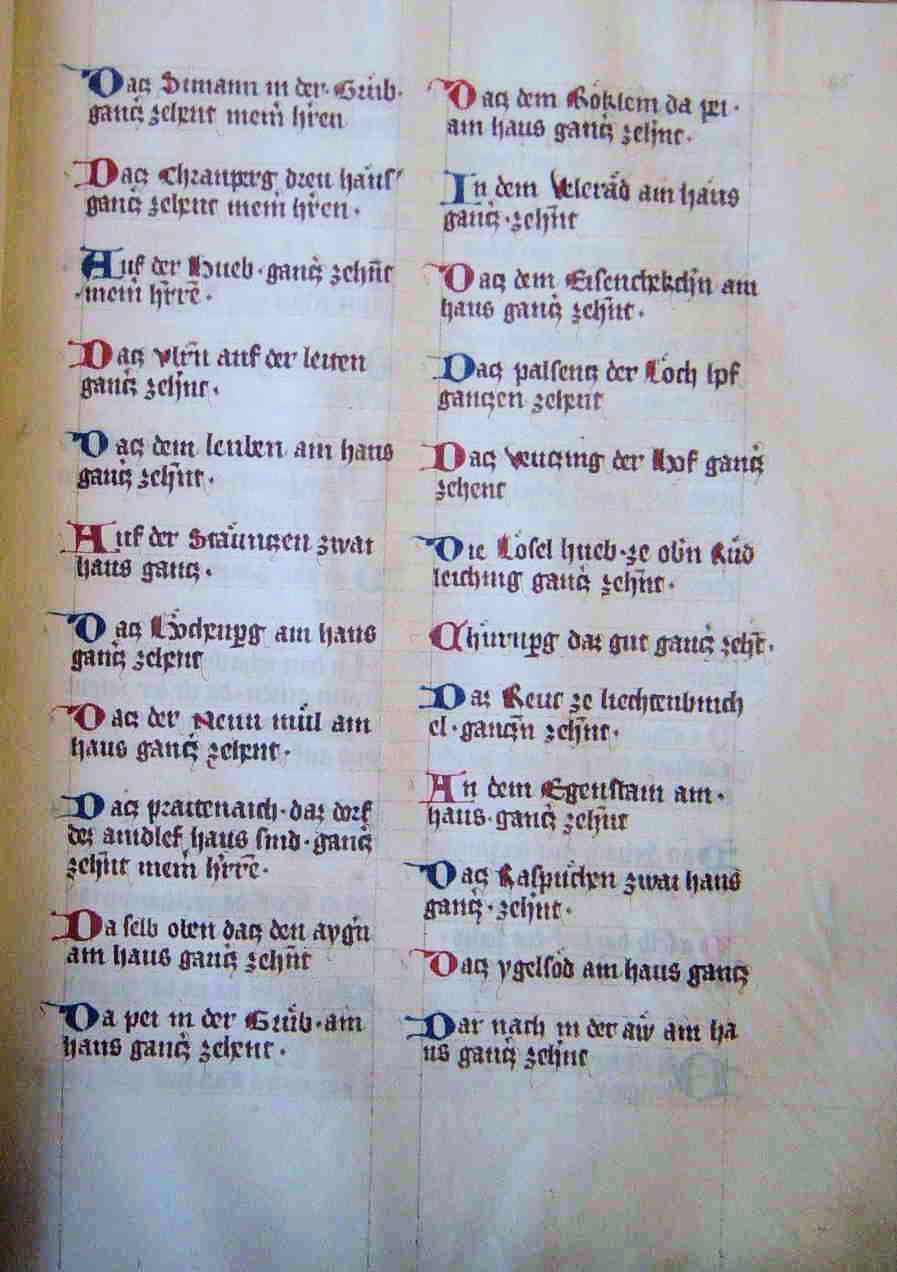 Dacz Simann in der Grub·
gancz zehent meim hren
Dacz Chranperg dreu haus
gancz zehent meim hren·
Auf der Hueb·gancz zehnt
meim hrre·
Dacz Vlrn auf der leiten
gancz zehnt·
Dacz dem leublen am haus
gancz zehnt·
Auf der zwai
haus gancz·
Dacz am haus
gancz zehent
Dacz der Neun mül am
haus gancz zehent·
Dacz prattenaich·daz dorf
dez aindlef haus sind·gancz
zehnt meim hrre·
Da selb oben dacz den aygn
am haus gancz zehnt
Da pei in der Grüb·am
haus gancz zehent·
Dacz dem Röklein da pei·
am haus gancz zehnt·
In dem am haus
gancz·zehnt
Dacz dem am
haus gancz zehnt·
Dacz palseng der Loch lpf
ganczen zehent
Dacz der Hof gancz
zehent
Die Losel hueb·ze obn Rud
leiching gancz zehnt·
Churnpg daz gut gancz zeht·
Daz Reut ze liechtenbuch
el·ganczn zehnt·
An dem Egenstain am·
haus·gancz zehnt
Dacz Raspuchen zwai haus
gancz·zehnt·
Dacz ygelsod am haus gancz
Dar nach in der aw am ha
us gancz zehnt